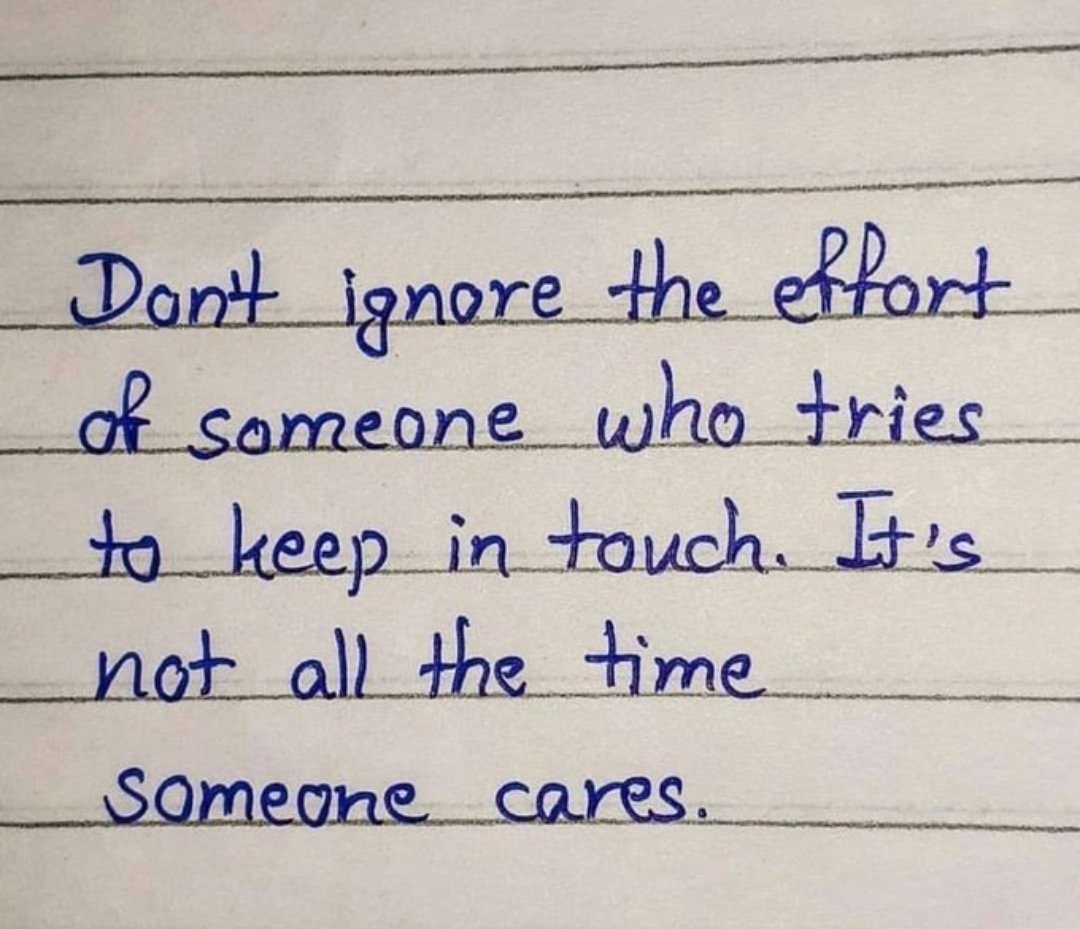 Don't ignore the effort
of someone who tries
to keep in touch. It's
not all the time
someone cares.